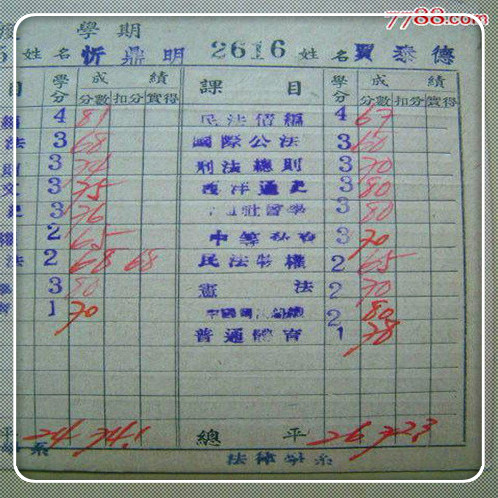 7788.com
學期
姓名 忻鼎明 2616 姓名 賈泰德
目 學分 成績 課目 學分 成績
分數 扣分 實得 分數 扣分 實得
4 81 民法債編 4 67
法 3 68 國際公法 3 60
則 3 刑法總則 3 70
3 75 西洋通史 3 80
3 76 3 80
2 65 3 70
法 2 68 68 民法物權 2 65
3 80 憲法 2 70
1 70 2 80
普通體育 1 78
24 74.1 總平 26 72.3
系 法律學系